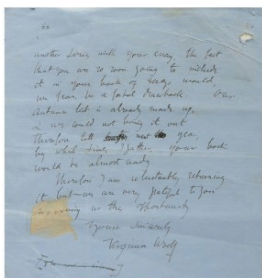 another series with your essay the fact
that you are so soon going to include
it in your book of essays would,
we fear be a fatal drawback. Our
Autumn list is already made up,
& we could not bring it out
therefore till next year,
by which time, I gather, your book
would be almost ready
Therefore I am reluctantly returning
it, but we are very grateful to you
for giving us the opportunity
Yours sincerely
Virginia Woolf